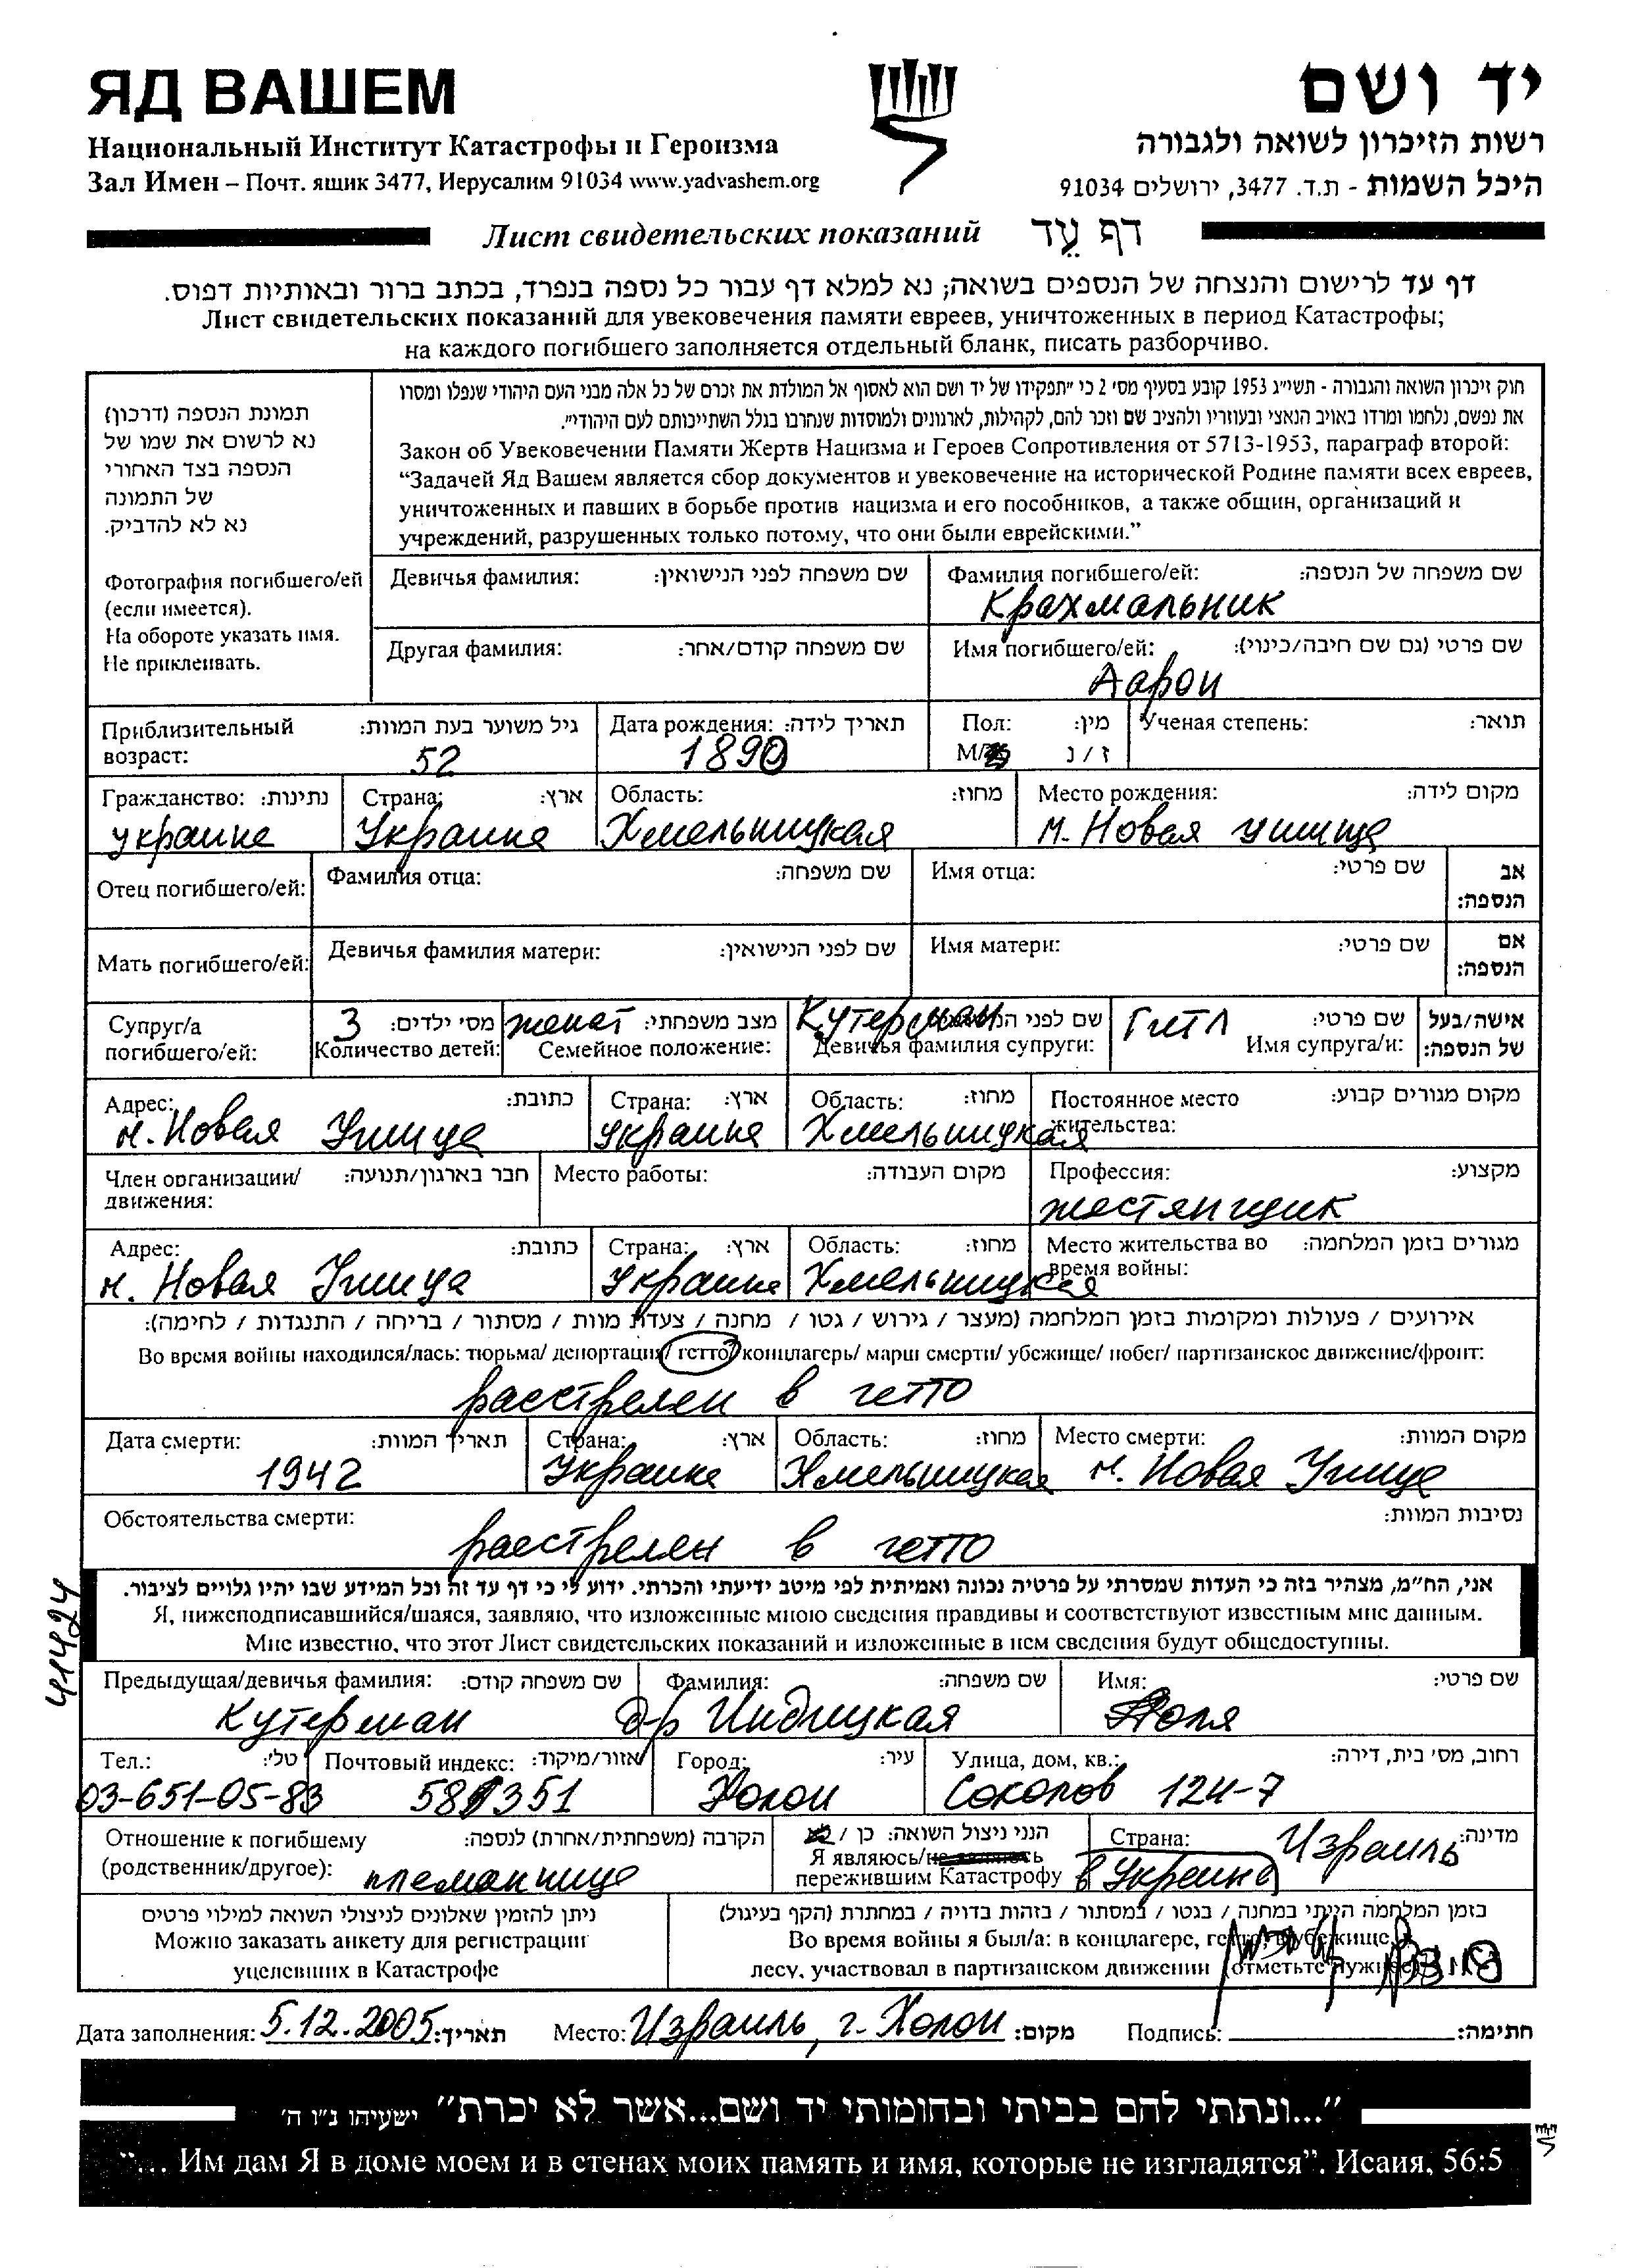 ЯД ВАШЕМ
יד ושם
Национальный Институт Катастрофы и Героизма
רשות הזיכרון לשואה ולגבורה
Зал Имен – Почт. ящик 3477, Иерусалим 91034 www.yadvashem.org
היכל השמות - ת.ד. 3477, ירושלים 91034
Лист свидетельских показаний דף עֵד
דף עד לרישום והנצחה של הנספים בשואה; נא למלא דף עבור כל נספה בנפרד, בכתב ברור ובאותיות דפוס.
Лист свидетельских показаний для увековечения памяти евреев, уничтоженных в период Катастрофы;
на каждого погибшего заполняется отдельный бланк, писать разборчиво.
תמונת הנספה (דרכון)
נא לרשום את שמו של
הנספה בצד האחורי
של התמונה
נא לא להדביק.
Фотография погибшего/ей
(если имеется).
На обороте указать имя.
Не приклеивать.
חוק זיכרון השואה והגבורה - תשי״ג 1953 קובע בסעיף מס׳ 2 כי ״תפקידו של יד ושם הוא לאסוף אל המולדת את זכרם של כל אלה מבני העם היהודי שנפלו ומסרו
את נפשם, נלחמו ומרדו באויב הנאצי ובעוזריו ולהציב שם וזכר להם, לקהילות, לארגונים ולמוסדות שנחרבו בגלל השתייכותם לעם היהודי״.
Закон об Увековечении Памяти Жертв Нацизма и Героев Сопротивления от 5713-1953, параграф второй:
“Задачей Яд Вашем является сбор документов и увековечение на исторической Родине памяти всех евреев,
уничтоженных и павших в борьбе против нацизма и его пособников, а также общин, организаций и
учреждений, разрушенных только потому, что они были еврейскими.”
Девичья фамилия: שם משפחה לפני הנישואין:
Фамилия погибшего/ей: שם משפחה של הנספה:
Крахмальник
Другая фамилия: שם משפחה קודם/אחר:
Имя погибшего/ей: שם פרטי (גם שם חיבה/כינוי):
Аарон
Приблизительный возраст: גיל משוער בעת המוות:
52
Дата рождения: תאריך לידה:
1890
Пол: מין:
М/ ז / נ
Ученая степень: תואר:
Гражданство: נתינות:
украине
Страна: ארץ:
Украине
Область: מחוז:
Хмельницкая
Место рождения: מקום לידה:
м. Новая ушица
Отец погибшего/ей: Фамилия отца: שם משפחה: Имя отца: שם פרטי: אב הנספה:
Мать погибшего/ей: Девичья фамилия матери: שם לפני הנישואין: Имя матери: שם פרטי: אם הנספה:
Супруг/а погибшего/ей:
3 מס׳ ילדים:
Количество детей:
женат מצב משפחתי:
Семейное положение:
Кутерман שם לפני
Девичья фамилия супруги:
Гитл שם פרטי:
Имя супруга/и:
אישה/בעל של הנספה:
Адрес: כתובת:
м. Новая Ушица
Страна: ארץ:
украине
Область: מחוז:
Хмельницкая
Постоянное место жительства: מקום מגורים קבוע:
Член организации/движения: חבר בארגון/תנועה:
Место работы: מקום העבודה:
Профессия: מקצוע:
жестянщик
Адрес: כתובת:
м. Новая Ушица
Страна: ארץ:
Украине
Область: מחוז:
Хмельницкая
Место жительства во время войны: מגורים בזמן המלחמה:
אירועים / פעולות ומקומות בזמן המלחמה (מעצר / גירוש / גטו / מחנה / צעדת מוות / מסתור / בריחה / התנגדות / לחימה):
Во время войны находился/лась: тюрьма/ депортация/ гетто/ концлагерь/ марш смерти/ убежище/ побег/ партизанское движение/фронт:
расстрелен в гетто
Дата смерти: תאריך המוות:
1942
Страна: ארץ:
Украине
Область: מחוז:
Хмельницкая
Место смерти: מקום המוות:
м. Новая Ушице
Обстоятельства смерти: נסיבות המוות:
расстрелен в гетто
אני, הח״מ, מצהיר בזה כי העדות שמסרתי על פרטיה נכונה ואמיתית לפי מיטב ידיעתי והכרתי. ידוע לי כי דף עד זה וכל המידע שבו יהיו גלויים לציבור.
Я, нижеподписавшийся/шаяся, заявляю, что изложенные мною сведения правдивы и соответствуют известным мне данным.
Мне известно, что этот Лист свидетельских показаний и изложенные в нем сведения будут общедоступны.
41424
Предыдущая/девичья фамилия: שם משפחה קודם:
Кутерман
Фамилия: שם משפחה:
д-р Индицкая
Имя: שם פרטי:
Поля
Тел.: טל׳:
03-651-05-83
Почтовый индекс: אזור/מיקוד:
Город: עיר:
Холон
Улица, дом, кв.: רחוב, מס׳ בית, דירה:
Соколов 124-7
Отношение к погибшему (родственник/другое): הקרבה (משפחתית/אחרת) לנספה:
племаннице
הנני ניצול השואה: כן /
Я являюсь/не являюсь
пережившим Катастрофу
Страна: מדינה:
Израиль
в Украине
ניתן להזמין שאלונים לניצולי השואה למילוי פרטים
Можно заказать анкету для регистрации
уцелевших в Катастрофе
בזמן המלחמה הייתי במחנה / בגטו / במסתור / בזהות בדויה / במחתרת (הקף בעיגול)
Во время войны я был/а: в концлагере, гетто, убежище,
лесу, участвовал в партизанском движении (отметьте нужное)
Дата заполнения: 5.12.2005 תאריך: Место: Израиль, г. Холон מקום: Подпись: חתימה:
״...ונתתי להם בביתי ובחומותי יד ושם...אשר לא יכרת״ ישעיהו נ״ו ה׳
“... Им дам Я в доме моем и в стенах моих память и имя, которые не изгладятся”. Исаия, 56:5